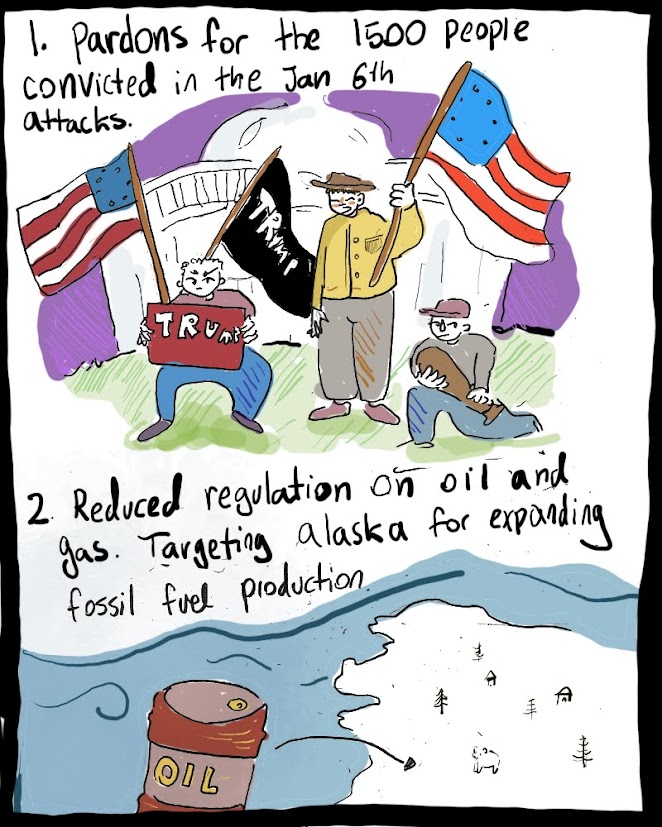 1. Pardons for the 1500 people
convicted in the Jan 6th
attacks.
TRUMP
TRUMP
2. Reduced regulation on oil and
gas. Targeting alaska for expanding
fossil fuel production
OIL